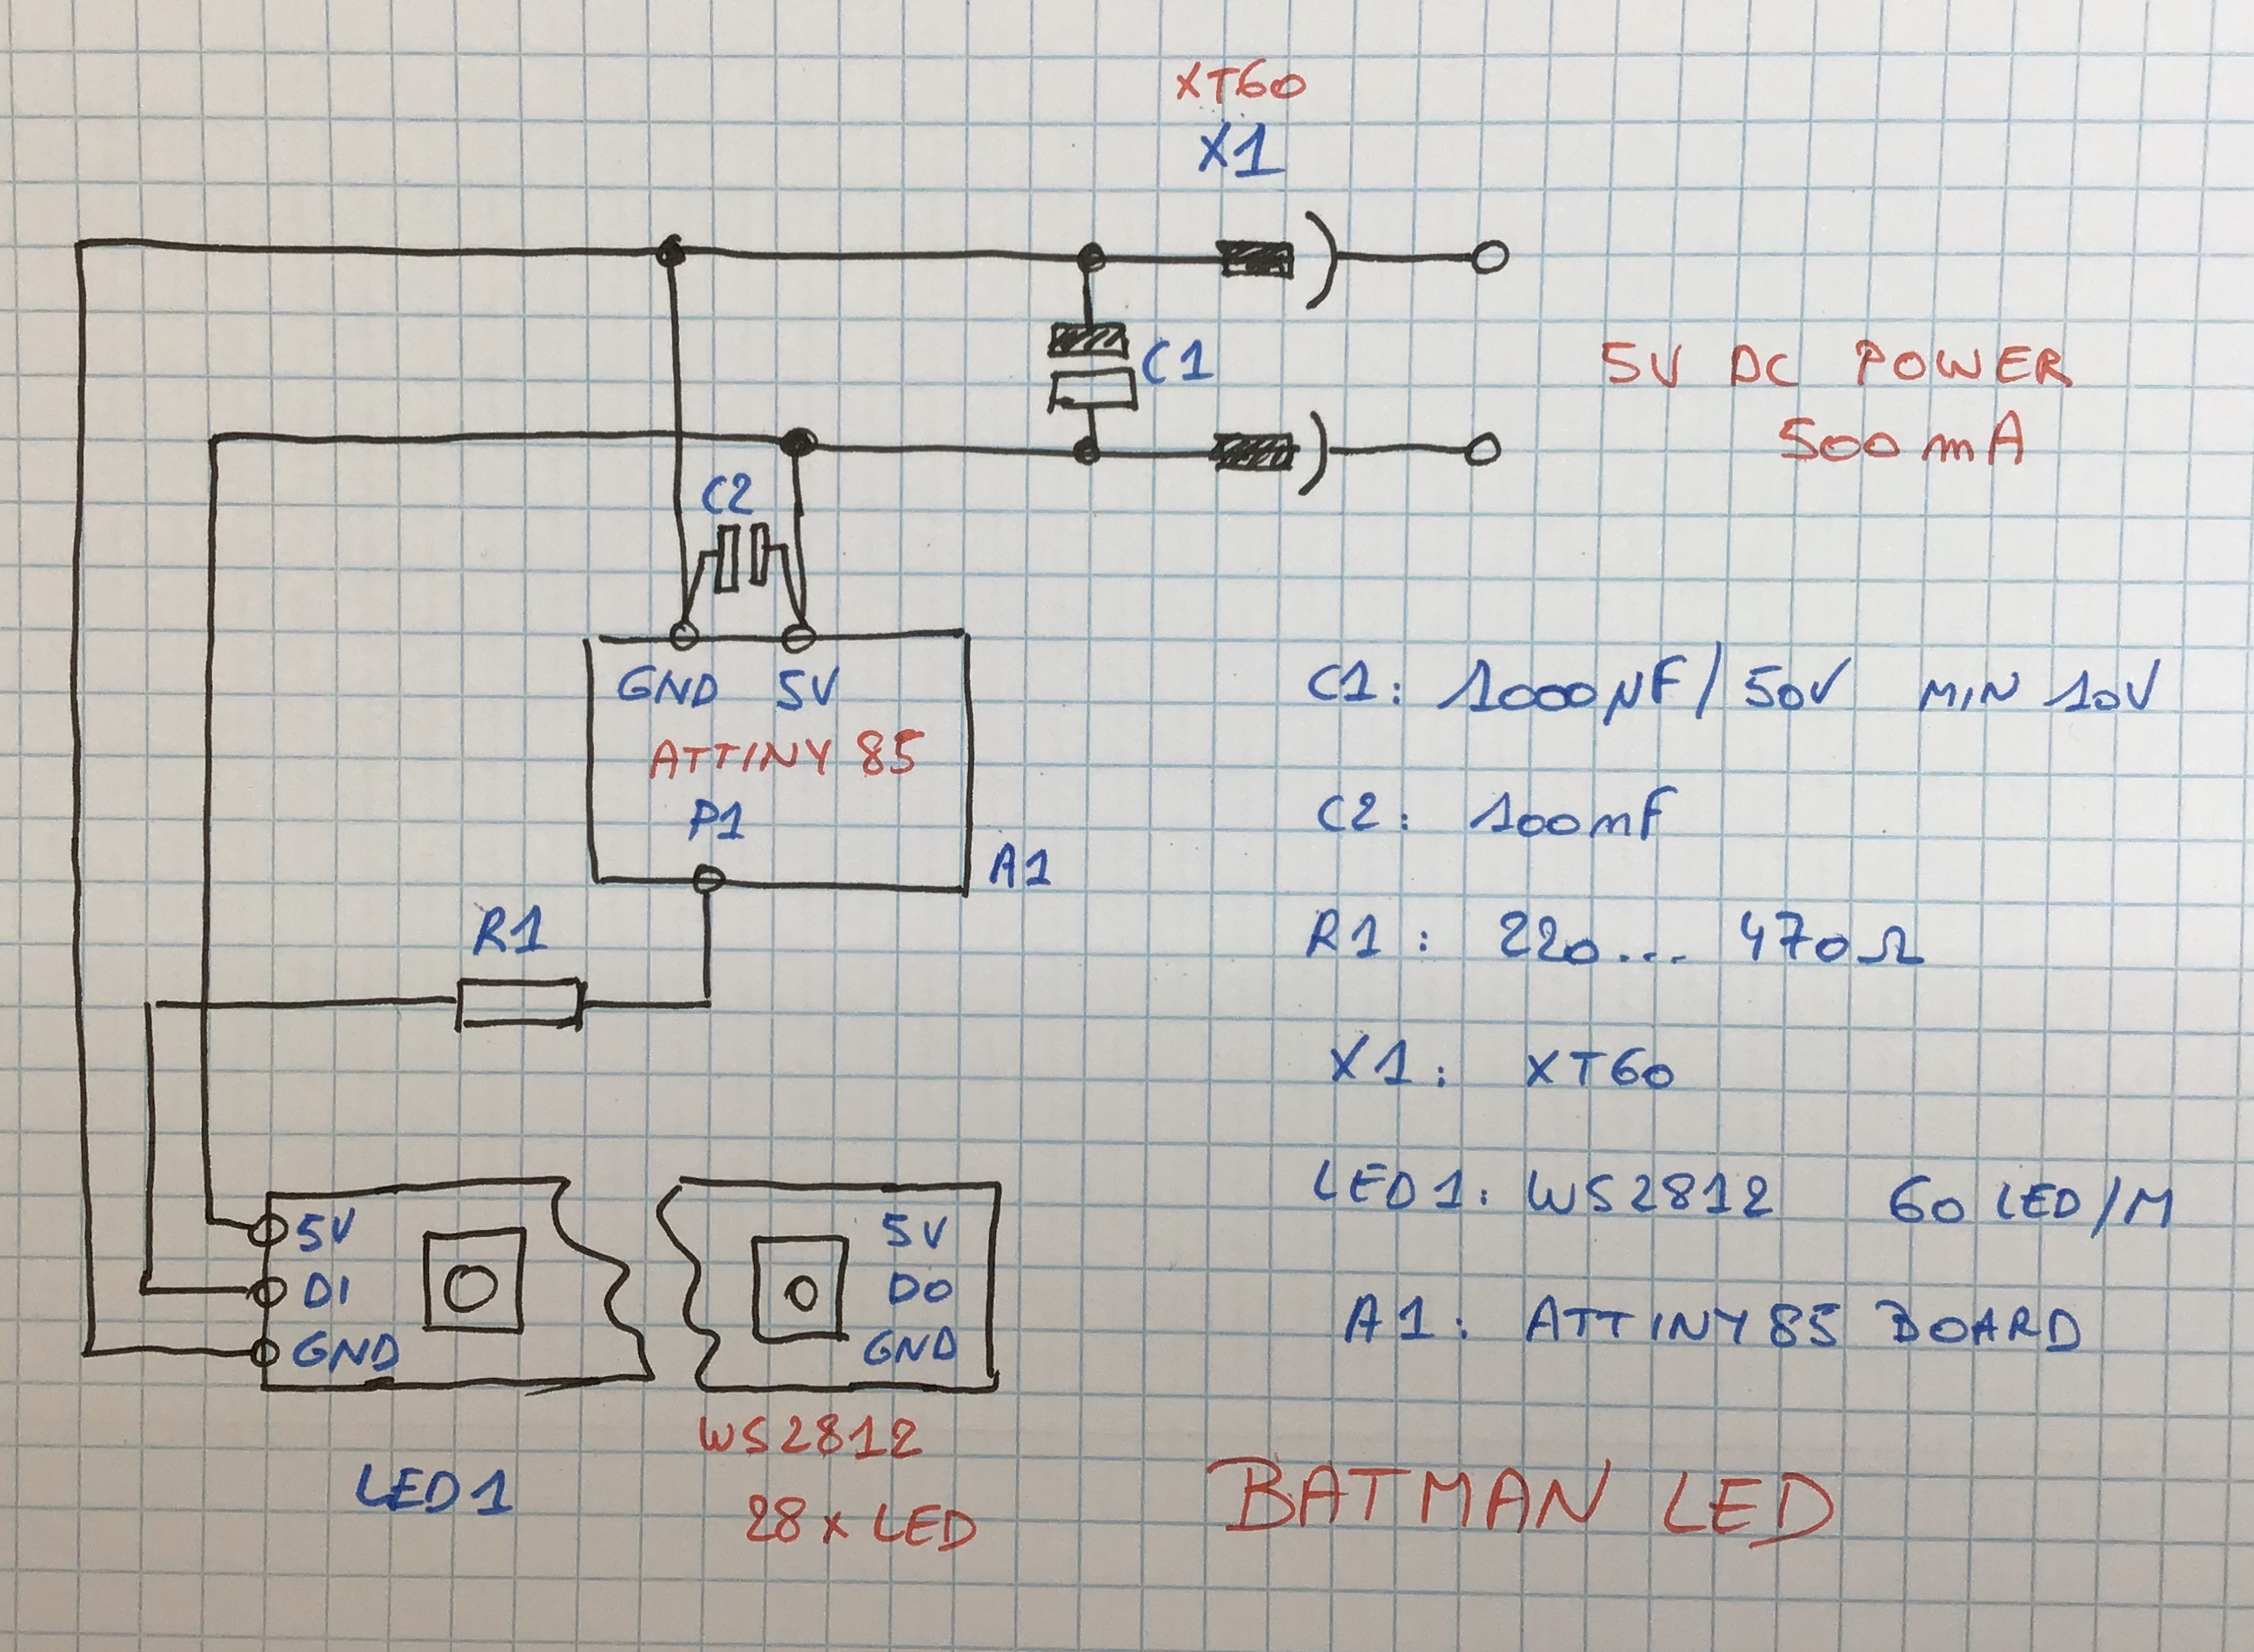 XT60
X1
C1
5V DC POWER
500mA
C2
GND 5V
ATTINY 85
P1
A1
R1
C1: 1000µF/50V MIN 10V
C2: 100nF
R1: 220... 470Ω
X1: XT60
LED1: WS2812 60 LED/M
A1: ATTINY85 BOARD
5V
DI
GND
5V
DO
GND
LED1
WS2812
28x LED
BATMAN LED